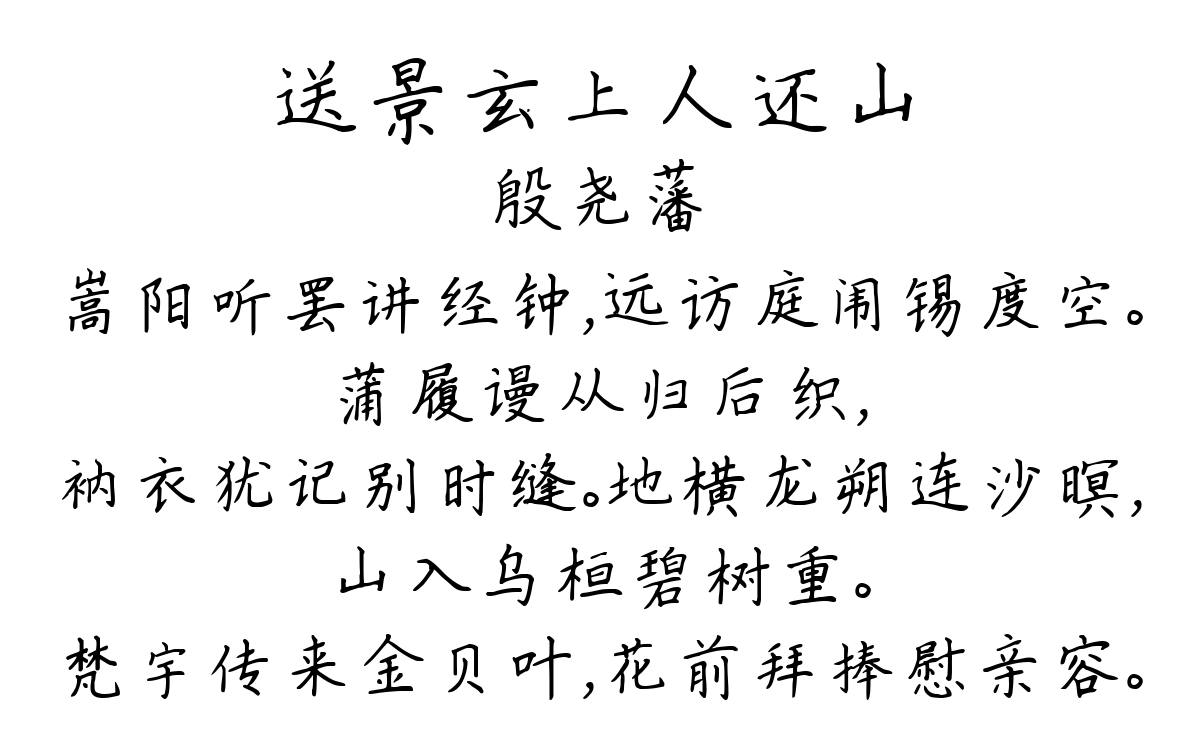 送景玄上人还山
殷尧藩
嵩阳听罢讲经钟,远访庭闹锡度空。
蒲履谩从归后织,
衲衣犹记别时缝。地横龙朔连沙暝,
山入乌桓碧树重。
梵宇传来金贝叶,花前拜捧慰亲容。